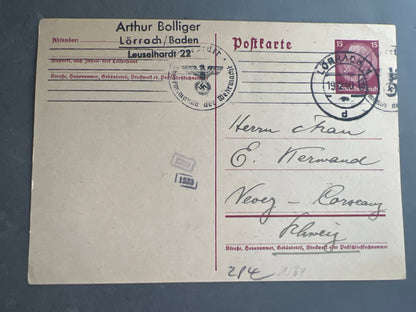 Arthur Bolliger
Absender: Lörrach/Baden
Leuselhardt 22
Wohnort, auch Zustell- oder Leitpostamt
Straße, Hausnummer, Gebäudeteil, Stockwerk od. Postschließfachnummer
der Wehrmacht
Postkarte
15 15
LÖRRACH
d
Herrn Frau
E. Kerwand
Vevey - Corseaux
Schweiz
Straße, Hausnummer, Gebäudeteil, Stockwerk oder Postschließfachnummer
1538